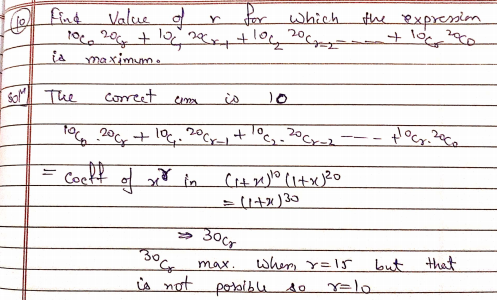 (10) Find Value of r for which the expression
¹⁰C₀ ²⁰Cᵣ + ¹⁰C₁ ²⁰Cᵣ₋₁ + ¹⁰C₂ ²⁰Cᵣ₋₂ ----- + ¹⁰Cᵣ ²⁰C₀
is maximum.
Solⁿ The correct is 10
¹⁰C₀ . ²⁰Cᵣ + ¹⁰C₁ . ²⁰Cᵣ₋₁ + ¹⁰C₂ . ²⁰Cᵣ₋₂ --- + ¹⁰Cᵣ . ²⁰C₀
= Coeff of xʳ in (1+x)¹⁰ (1+x)²⁰
= (1+x)³⁰
⇒ ³⁰Cᵣ
³⁰Cᵣ max. when r=15 but that
is not possible so r=10